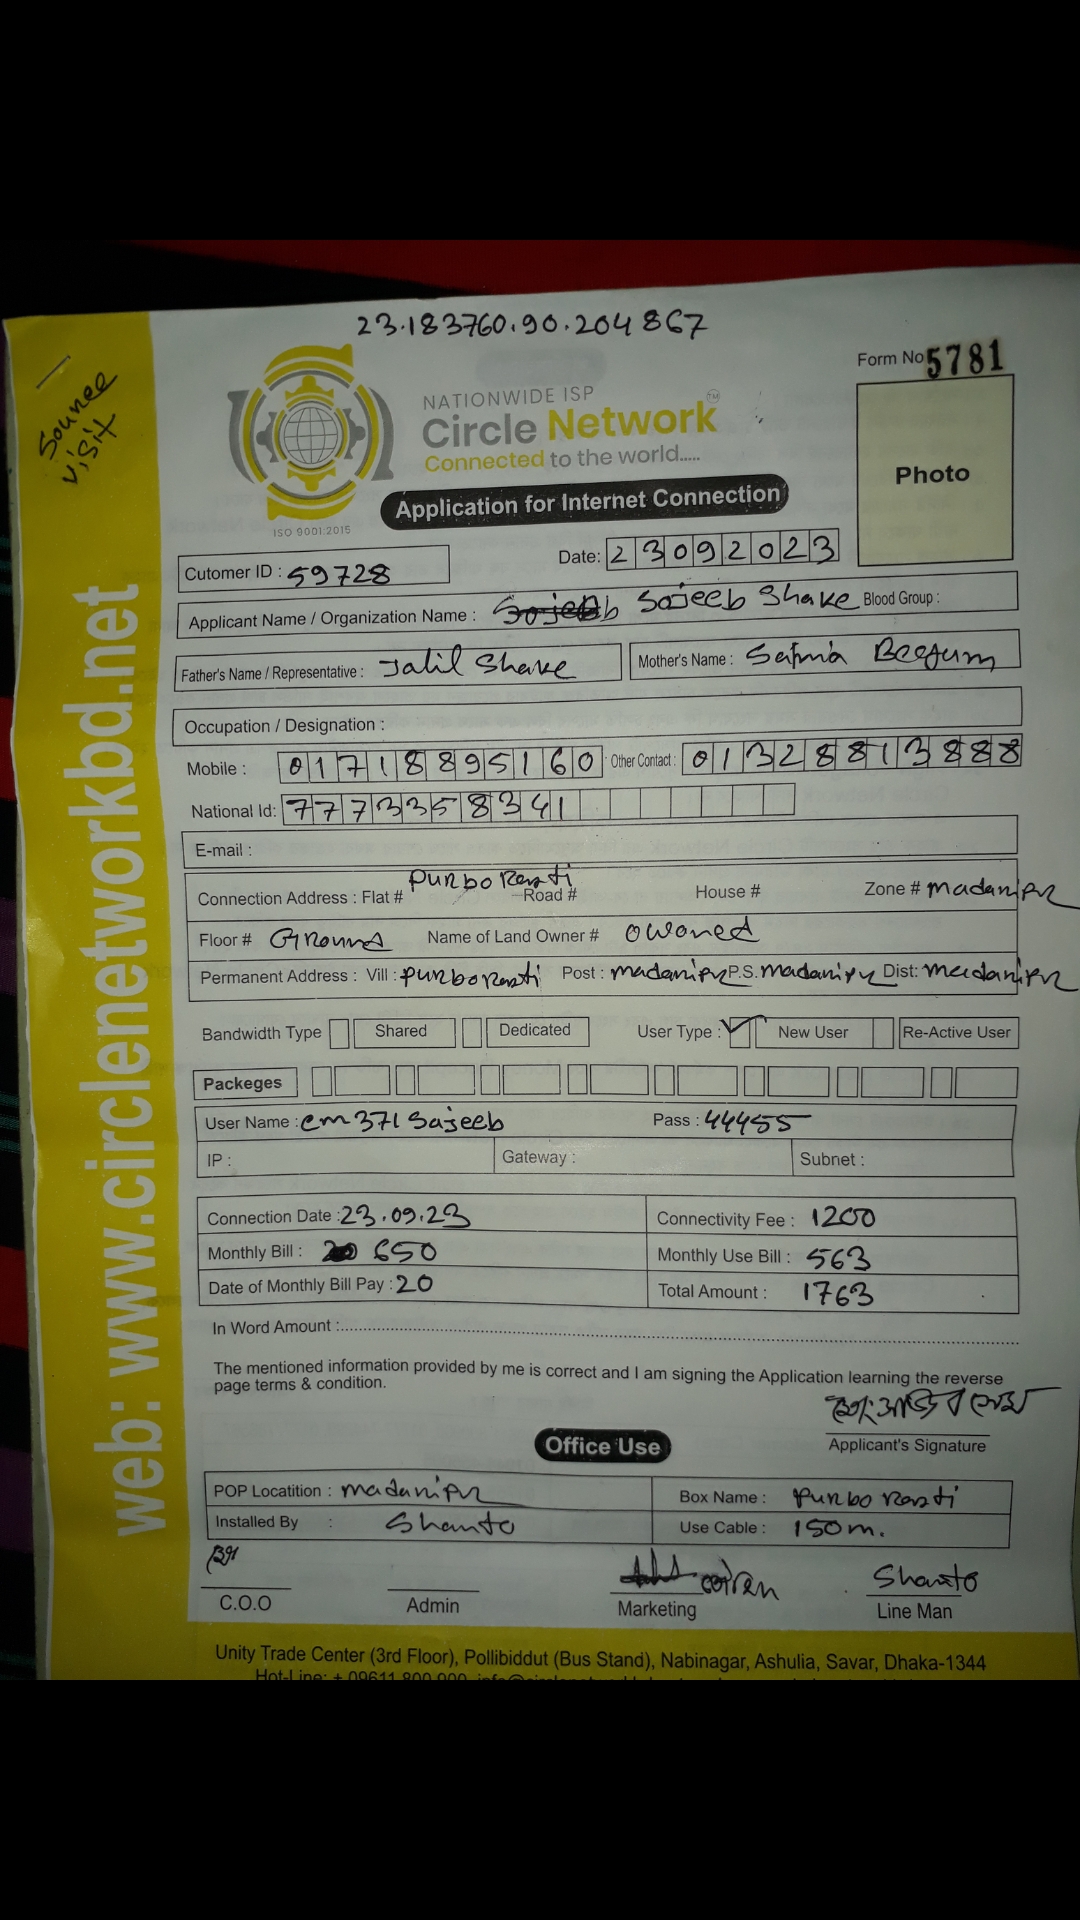 23.183760.90.204867
Sounee
visit
Form No 5781
NATIONWIDE ISP
Circle Network TM
Connected to the world.....
Photo
ISO 9001:2015
Application for Internet Connection
Date: 23092023
Cutomer ID : 59728
Applicant Name / Organization Name : Sojeeb Shake Blood Group :
Father's Name / Representative : Jalil Shake Mother's Name : Beegum
Occupation / Designation :
Mobile : 01718895160 Other Contact : 01328813888
National Id: 7773358341
E-mail :
Purbo Rasti
Connection Address : Flat # Road # House # Zone # madaripur
Floor # Ground Name of Land Owner # owoned
Permanent Address : Vill : purbo Rasti Post : madaripur P.S. madaripur Dist: madaripur
Bandwidth Type Shared Dedicated User Type : New User Re-Active User
Packeges
User Name : cm371 Sajeeb Pass : 44455
IP : Gateway : Subnet :
Connection Date : 23.09.23 Connectivity Fee : 1200
Monthly Bill : 650 Monthly Use Bill : 563
Date of Monthly Bill Pay : 20 Total Amount : 1763
In Word Amount :
The mentioned information provided by me is correct and I am signing the Application learning the reverse
page terms & condition.
Applicant's Signature
Office Use
POP Locatition : madaripur Box Name : Purbo Rasti
Installed By : Shanto Use Cable : 150m.
Shanto
C.O.O Admin Marketing Line Man
Unity Trade Center (3rd Floor), Pollibiddut (Bus Stand), Nabinagar, Ashulia, Savar, Dhaka-1344
Hot-Line: + 09611 800 900,
web: www.circlenetworkbd.net